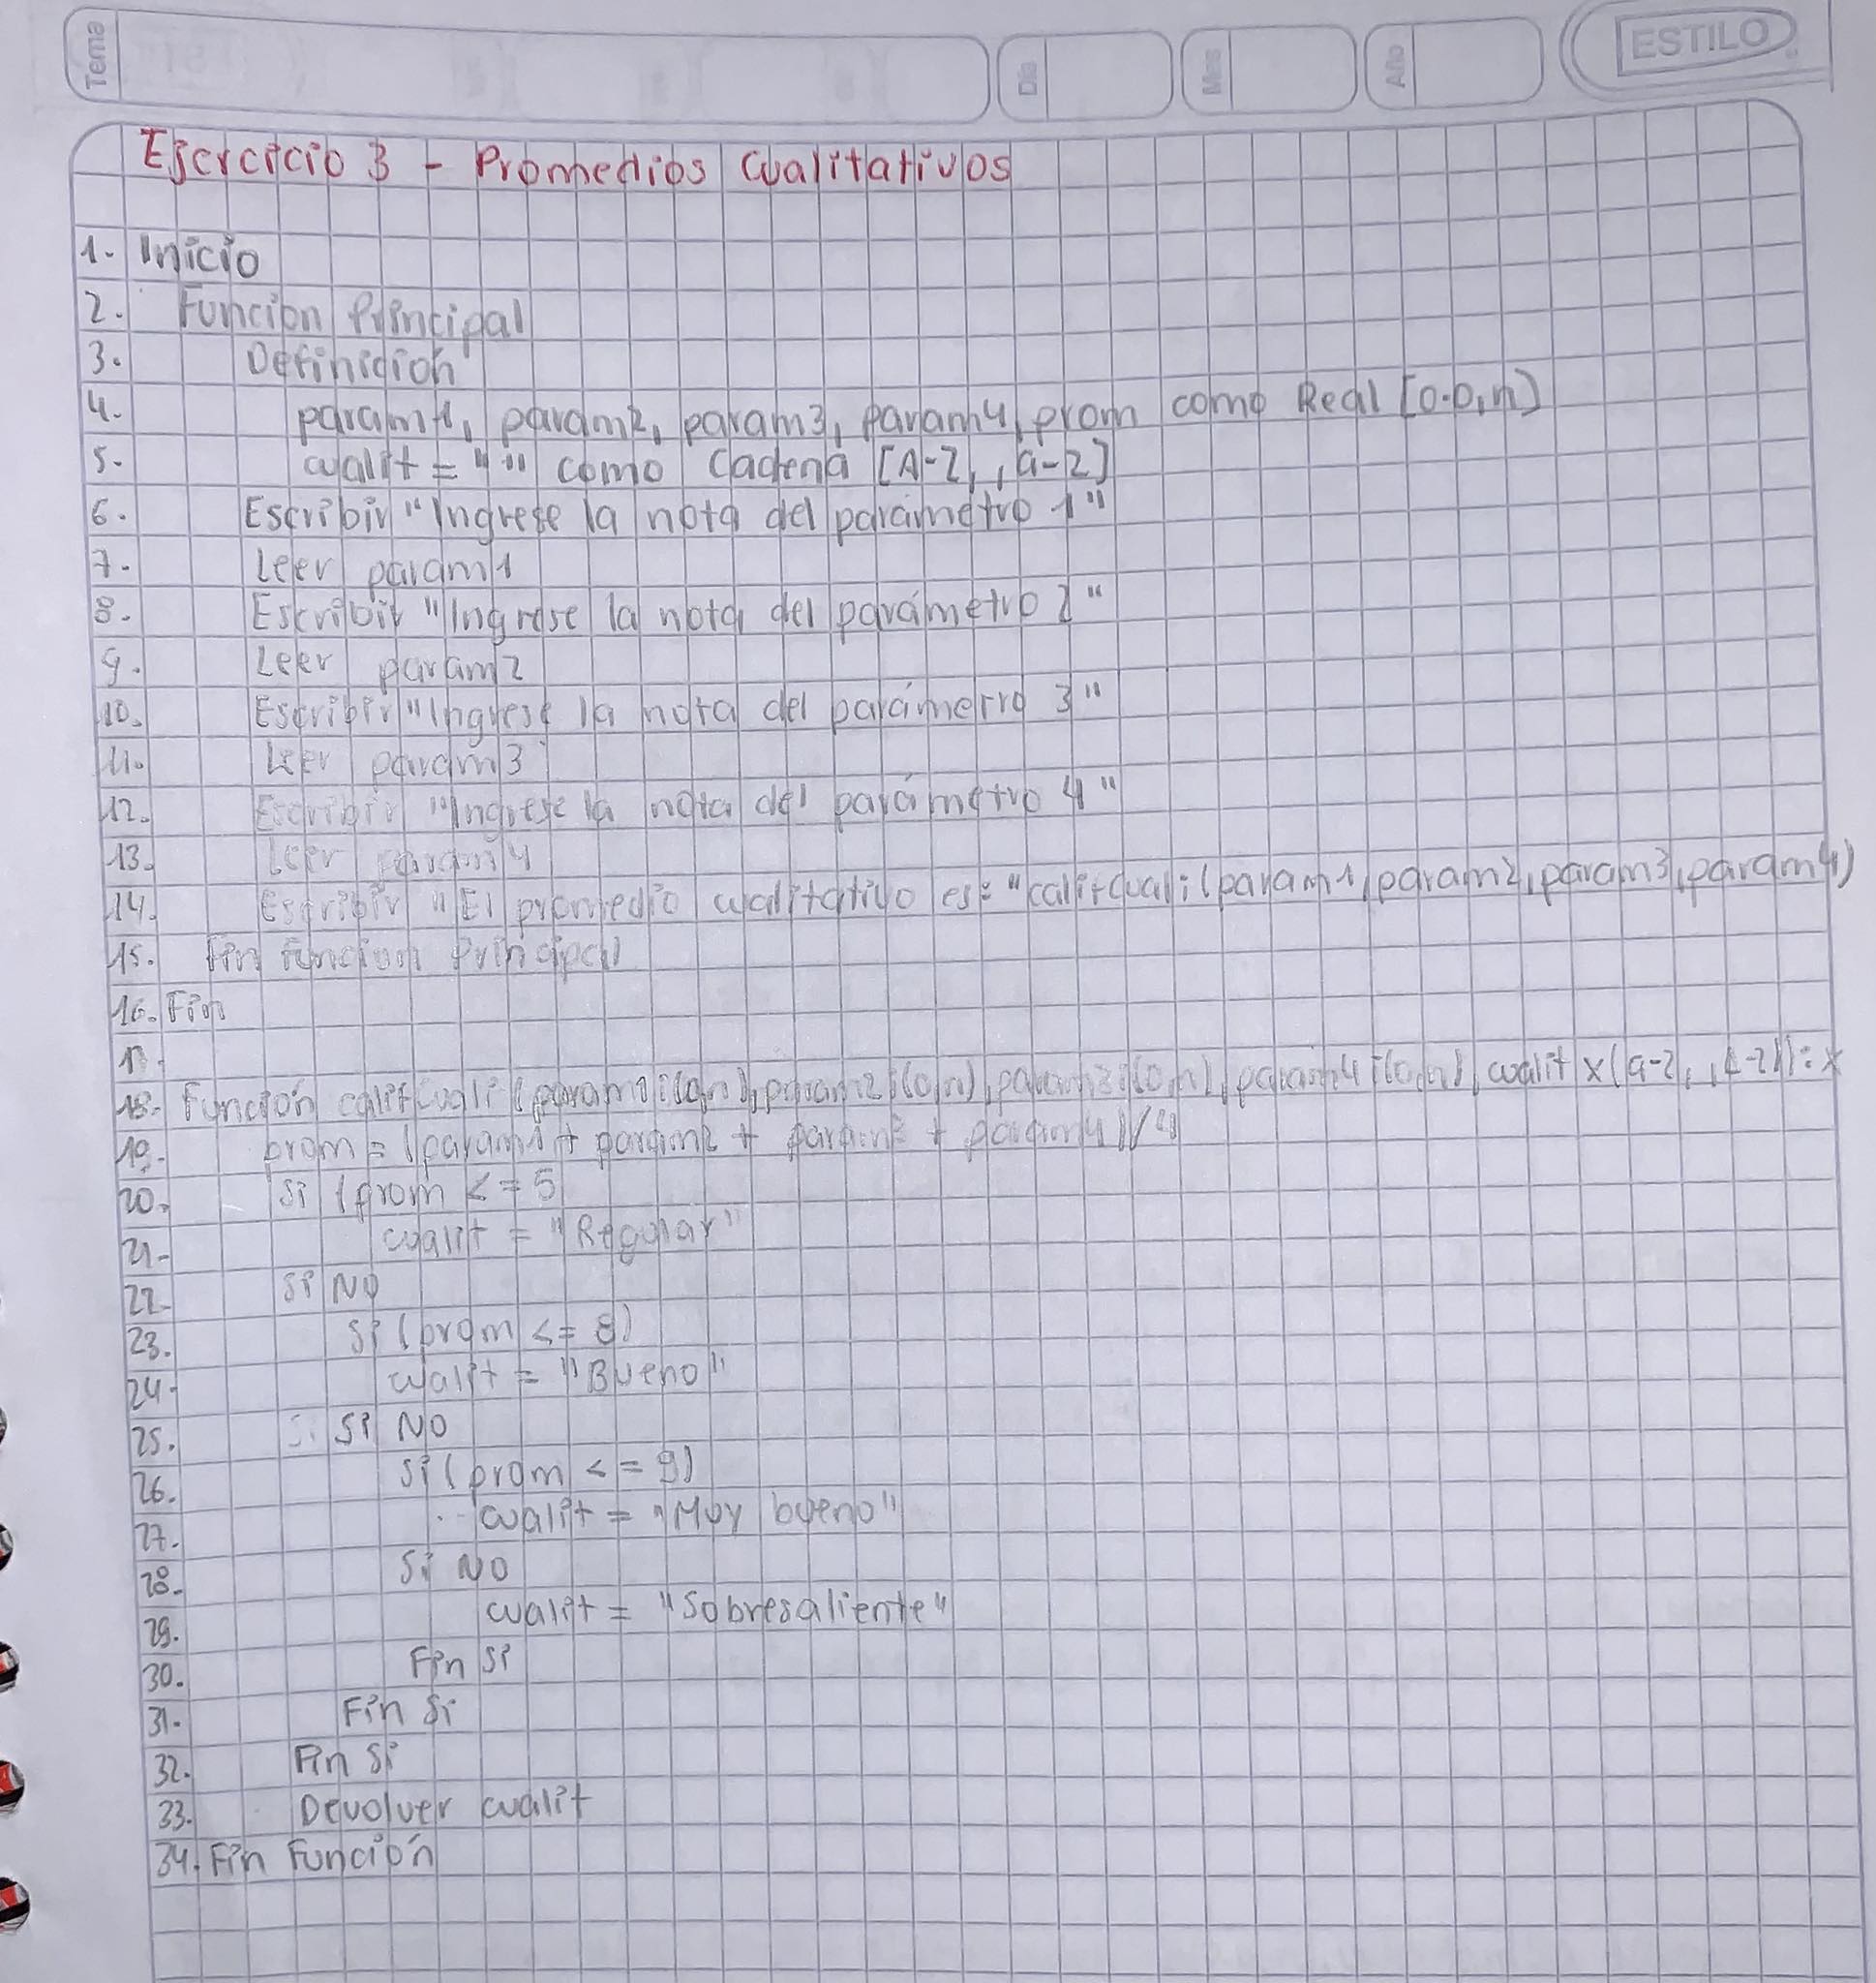 Tema
Día
Mes
Año
ESTILO
Ejercicio 3 - Promedios Cualitativos
1. Inicio
2. Función Principal
3. Definición
4. param1, param2, param3, param4, prom como Real [0.0,n)
5. cualit = " " como Cadena [A-Z, , a-z]
6. Escribir "Ingrese la nota del parámetro 1"
7. Leer param1
8. Escribir "Ingrese la nota del parámetro 2"
9. Leer param2
10. Escribir "Ingrese la nota del parámetro 3"
11. Leer param3
12. Escribir "Ingrese la nota del parámetro 4"
13. Leer param4
14. Escribir "El promedio cualitativo es: "calificuali(param1, param2, param3, param4)
15. Fin Función Principal
16. Fin
17.
18. Función
19. prom = (param1 + param2 + param3 + param4)/4
20. Si (prom <= 5
21. cualit = "Regular"
22. Si NO
23. Si (prom <= 8)
24. cualit = "Bueno"
25. Si NO
26. Si (prom <= 9)
27. cualit = "Muy bueno"
28. Si NO
29. cualit = "Sobresaliente"
30. Fin Si
31. Fin Si
32. Fin Si
33. Devolver cualit
34. Fin Función